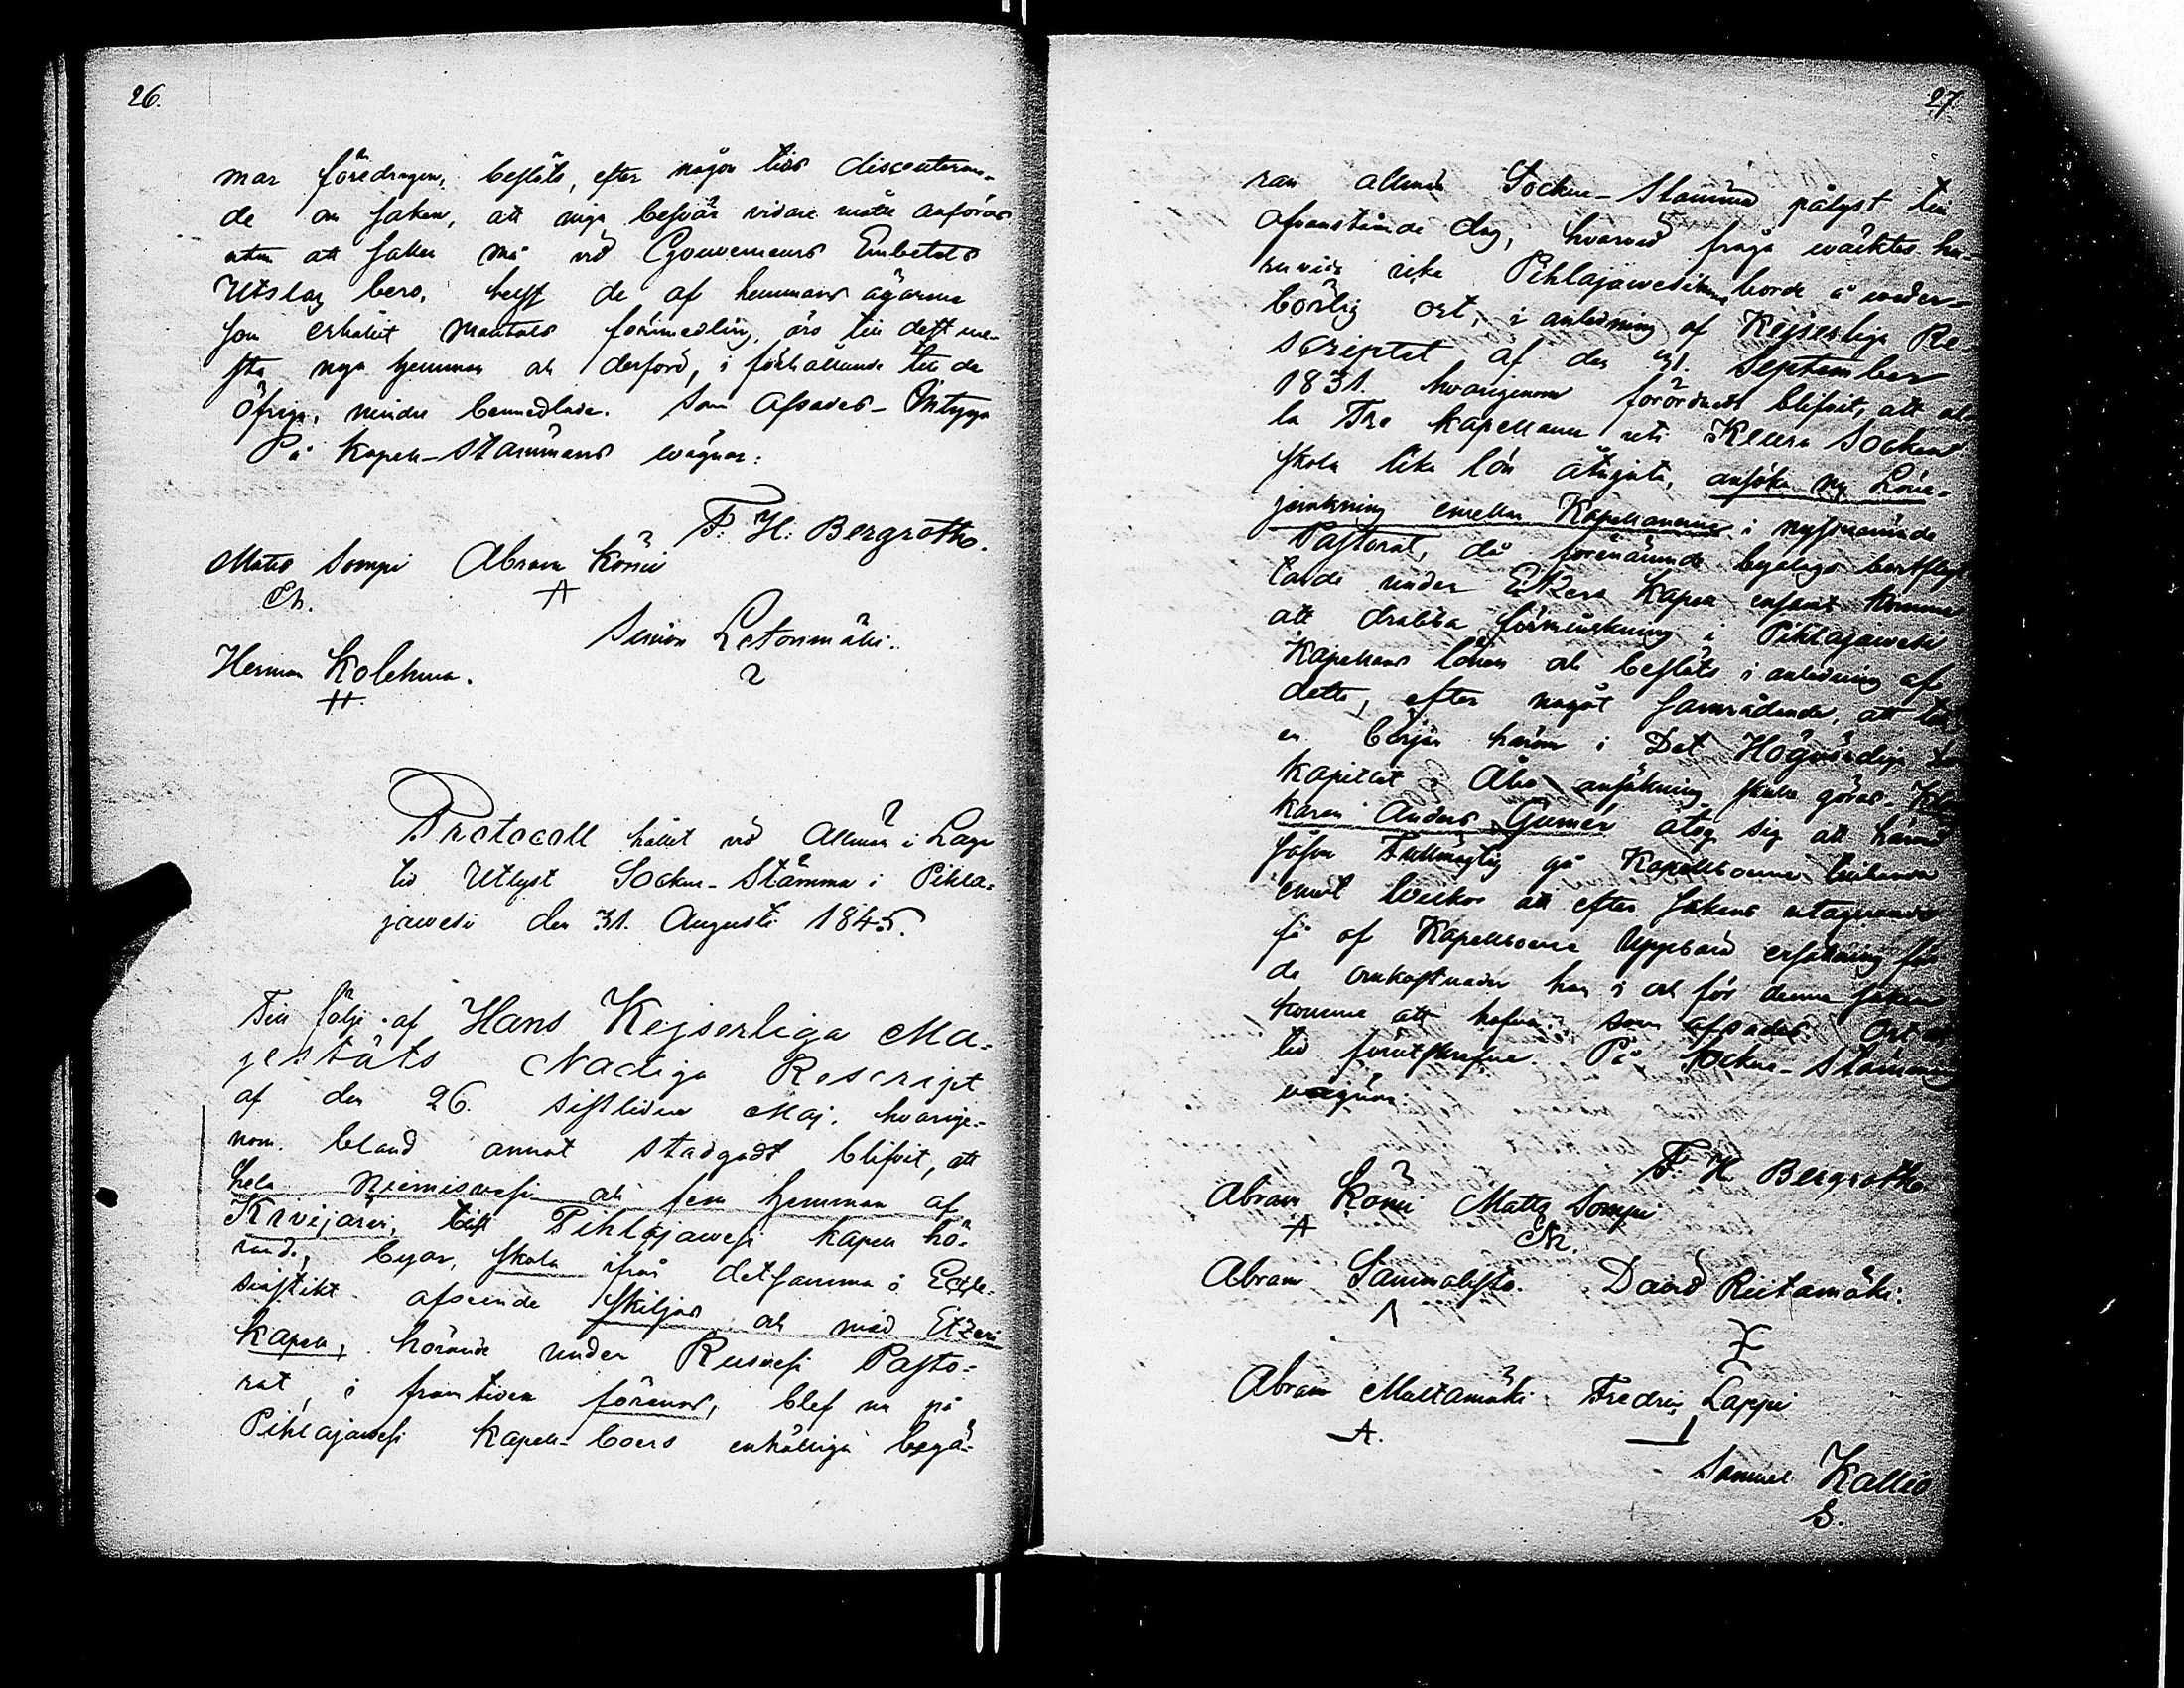 26.
mar föredragen, beslöts, efter någon tids discouteran-
de om saken, att inga besvär vidare måtte anföras
utan att saken må vid Gouverneurs Embetets
Utslag bero, helst de af hemmans ägarena
som erhållit mantals förmedling, äro till dess me-
sta nya hemman och derförd, i förhållande till de
öfriga, mindre bemedlade. Som afsades - Intyga
På Kapell-Stämmans wägnar:
F. H. Bergroth.
Matts Sompi Abram Köni
Ch. A
Simon Letonmäki.
Herman Kolehma.
H.
Protocoll hållet vid Allmän i Laga
tid Utlyst Sockne-Stämma i Pihla-
jawesi den 31. Augusti 1845.
Till följe af Hans Kejserliga Ma-
jestäts Nådiga Rescript
af den 26. sistliden Maj, hvarige-
nom bland annat stadgadt blifvit, att
hela Niemisvesi och fem hemman af
Kivijärvi, till Pihlajawesi kapell hö-
rande, byar, skola ifrån detsamma i Eccle-
siastikt afseende skiljas och med Etzeri
Kapell, hörande under Ruovesi Pasto-
rat, i framtiden förenas, blef nu på
Pihlajawesi Kapell-boers enhälliga begä-
27
ran allmän Sockne-Stämma pålyst till
ofvanstående dag, hvarvid fråga wäcktes hu-
ruvida icke Pihlajawesikuna borde å weder-
börlig ort, i anledning af Kejserliga Re-
scriptet af den 21. September
1831. hvarigenom förordnadt blifvit, att al-
la Tre kapellaner uti Keuru Socken
skola lika lön åtnjuta, ansöka ny Löne-
jemkning emellan Kapellanerne i nyssnämnde
Pastorat, då förenämnde byalags bortflyt-
tande under Etzeri Kapell ensamt komme
att drabba förminskning i Pihlajawesi
Kapellans löhen och beslöts i anledning af
detta, efter något samrådande, att
en början härom i Det Högvördiga
Kapitlet i Åbo ansökning skulle göras.
karen Anders Gumér åtog sig att härvid
såsom Fullmägtig gå Kapellboerne tillhanda
emot wilkor att efter sakens utagerande
få af Kapellboerne Uppbära ersättning för
de omkostnader han i och för denna saken
komme att hafva. Som afsades Ort och
tid förutskrefne. På Sockne-Stämmans
wägnar.
F. H. Bergroth
Abram Köni Matts Sompi
A Ch.
Abram Sammalisto. David Riitamäki.
Abram Multamäki Fredric Lappi
A.
Samuel Kallio
S.